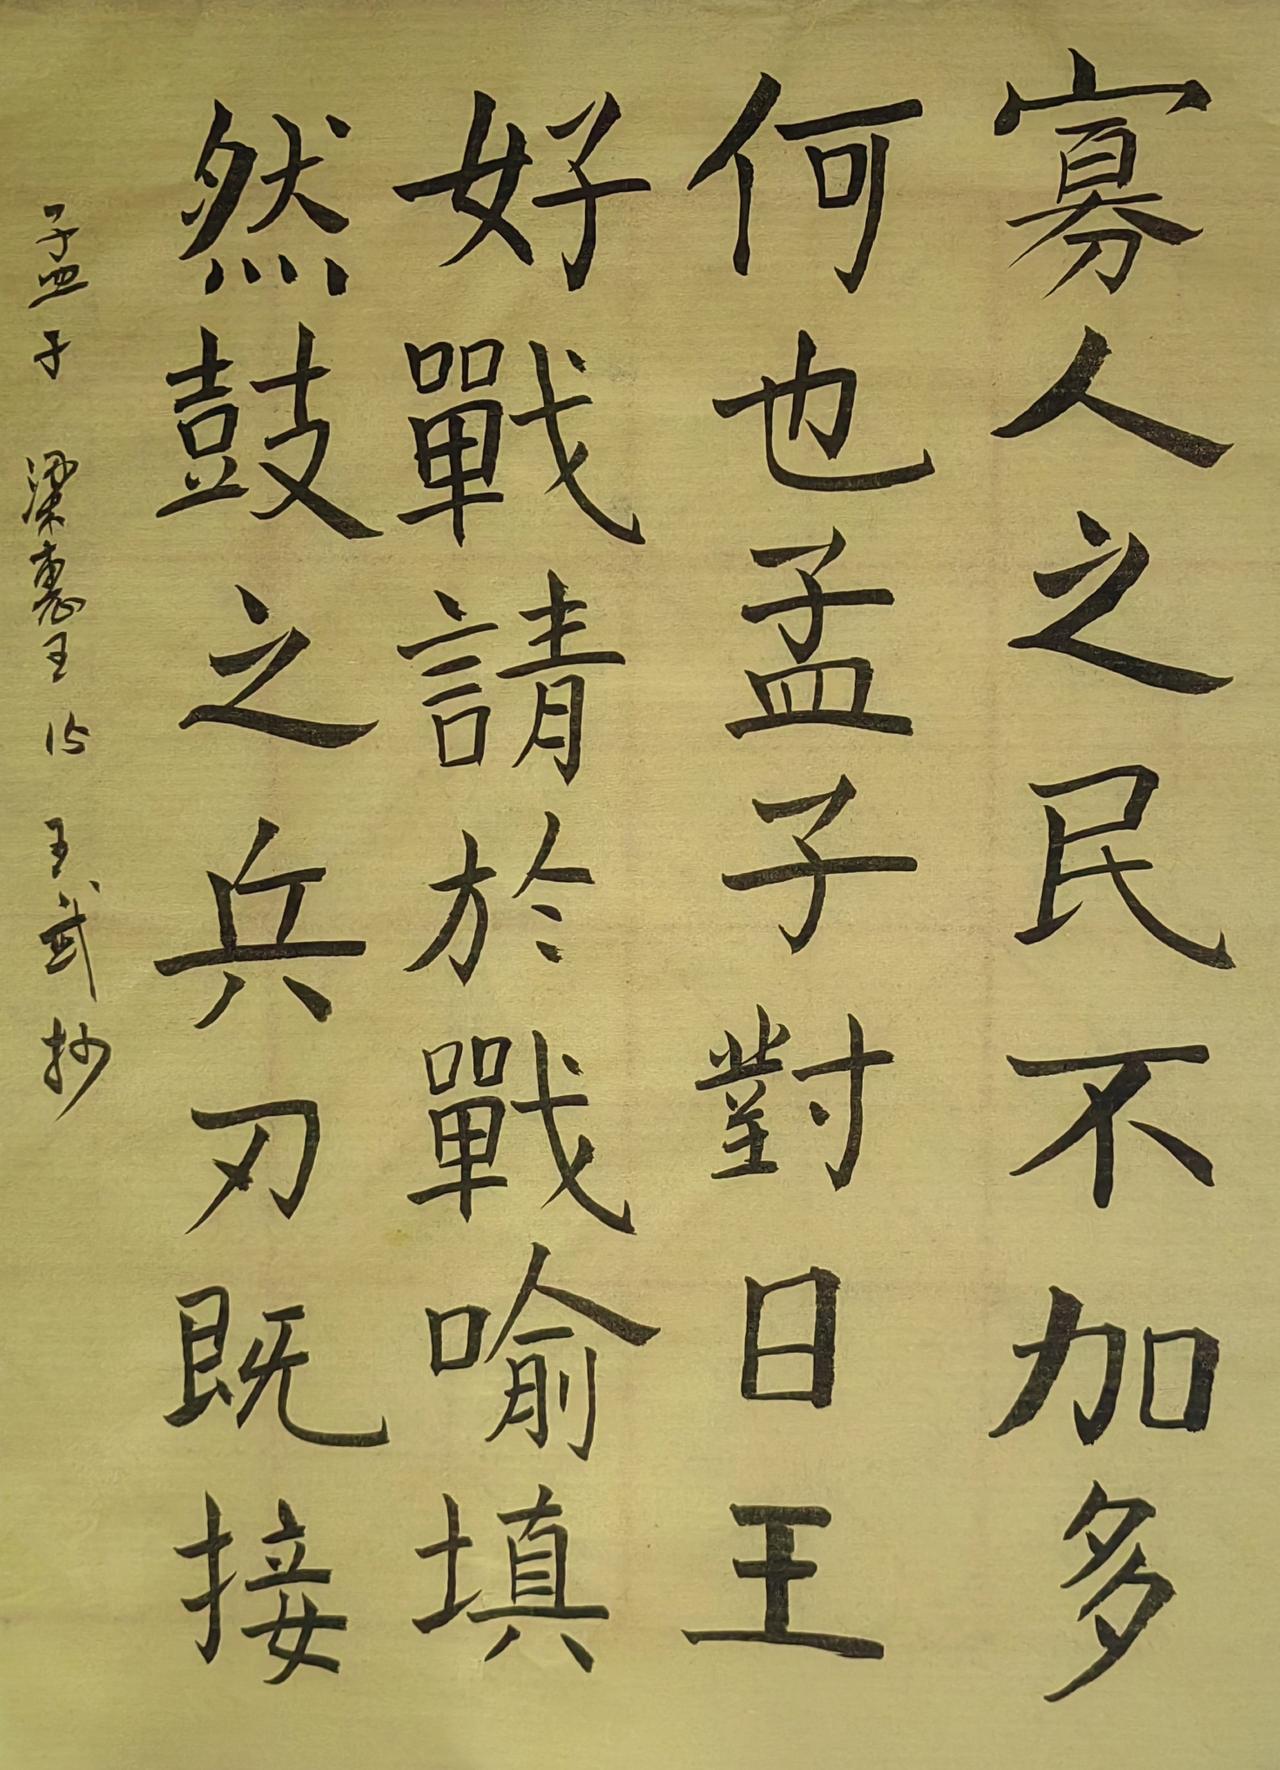 寡人之民不加多
何也孟子對日王
好戰請於戰喻填
然鼓之兵刃既接
孟子 梁惠王 15 王武抄